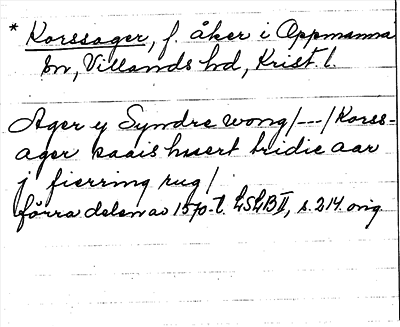 * Korssager, f. åker i Oppmanna
sn, Villands hd, Krist. l.
Ager y Syndre wong/---/Korss-
ager kaais huert tridie aar
j fierring rug/
förra delen av 1570-t. LSLB II, s. 214. orig